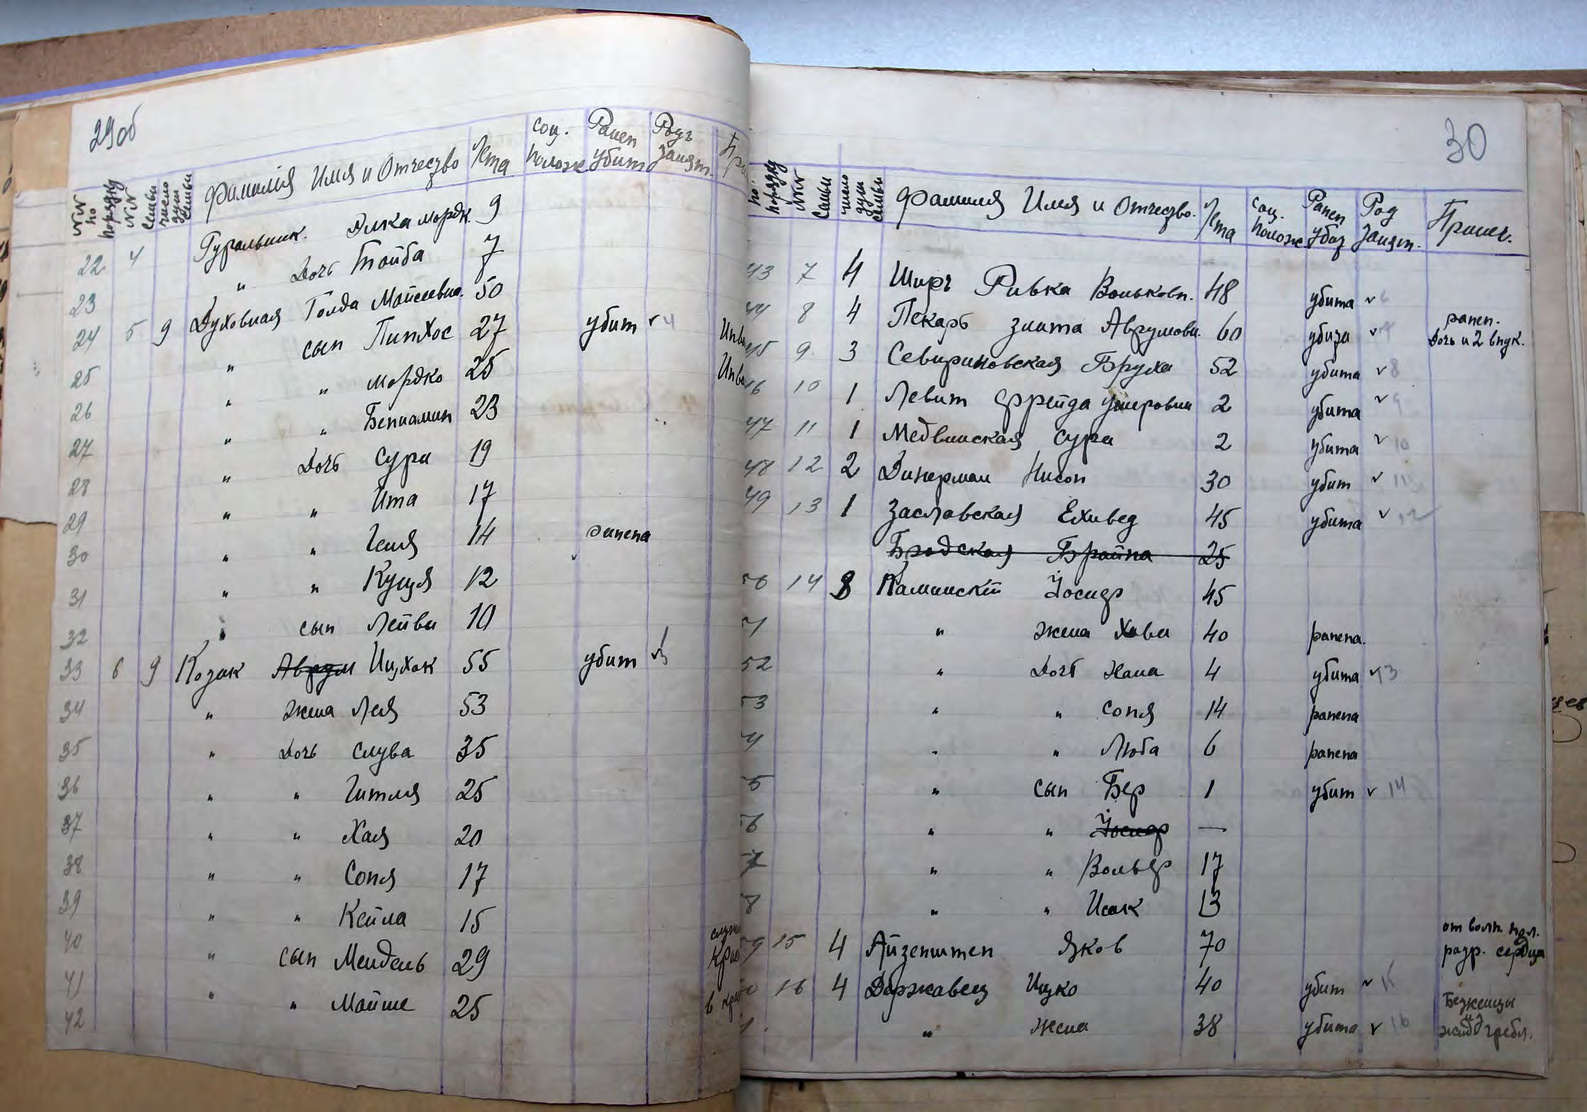 29об
№№ по порядку №№ семьи число душ семьи Фамилия Имя и Отчество Лета Соц. полож Ранен убит Родъ занят. При
22 4 Гуральник. Элка Мордк. 9
23 " Дочь Тойба 7
24 5 9 Духовная Голда Майсеевна 50
25 " сын Пинхос 27 убит ✓ 4 Инв
26 " " Мордко 25 Инв
27 " " Бениамин 23
28 " Дочь Сура 19
29 " " Ита 17
30 " " Геня 14 ранена
31 " " Куция 12
32 " сын Лейви 10
33 6 9 Козак Аврум Ицхок 55 убит ✓
34 " жена Лея 53
35 " Дочь Слува 35
36 " " Гитля 25
37 " " Хая 20
38 " " Соня 17
39 " " Кейла 15
40 " сын Мендель 29
41 " " Майше 25
42
30
по порядку №№ Семьи число душ семьи Фамилия Имя и Отчество. Лета Соц. Полож Ранен убит Род Занят. Примеч.
43 7 4 Шир Ривка Вольковн. 48 убита ✓ 6
44 8 4 Пекарь Злата Аврумовн 60 убита ✓ ранен. Дочь и 2 внук.
45 9 3 Севириновская Бруха 52 убита ✓ 8
46 10 1 Левит Фрейда Ушеровна 2 убита ✓ 9
47 11 1 Медвинская Сура 2 убита ✓ 10
48 12 2 Динерман Нисон 30 убит ✓ 11
49 13 1 Заславская Ехивед 45 убита ✓ 12
Бродская Брайна 25
50 14 8 Каминский Иосиф 45
51 " жена Хова 40 ранена.
52 " Дочь Хана 4 убита ✓ 13
53 " " Соня 14 ранена
54 " " Люба 6 ранена
55 " сын Бер 1 убит ✓ 14
56 " " Иосиф —
57 " " Вольф 17
58 " " Исак 13
59 15 4 Айзенштен Яков 70 от волн. пол. разр. сердца
60 16 4 Доржавец Ицко 40 убит ✓ 15
61 " жена 38 убита ✓ 16 Беженцы